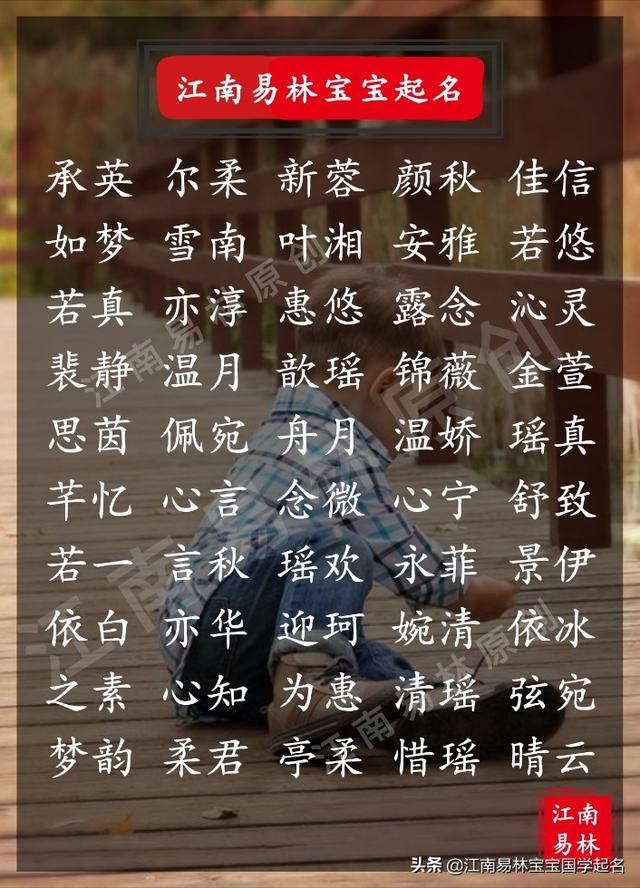 江南易林宝宝起名
承英 尔柔 新蓉 颜秋 佳信
如梦 雪南 叶湘 安雅 若悠
若真 亦淳 惠悠 露念 沁灵
裴静 温月 歆瑶 锦薇 金萱
思茵 佩宛 舟月 温娇 瑶真
芊忆 心言 念微 心宁 舒致
若一 言秋 瑶欢 永菲 景伊
依白 亦华 迎珂 婉清 依冰
之素 心知 为惠 清瑶 弦宛
梦韵 柔君 亭柔 惜瑶 晴云
江南易林原创
江南易林原创
江南易林原创
江南
易林
头条 @江南易林宝宝国学起名